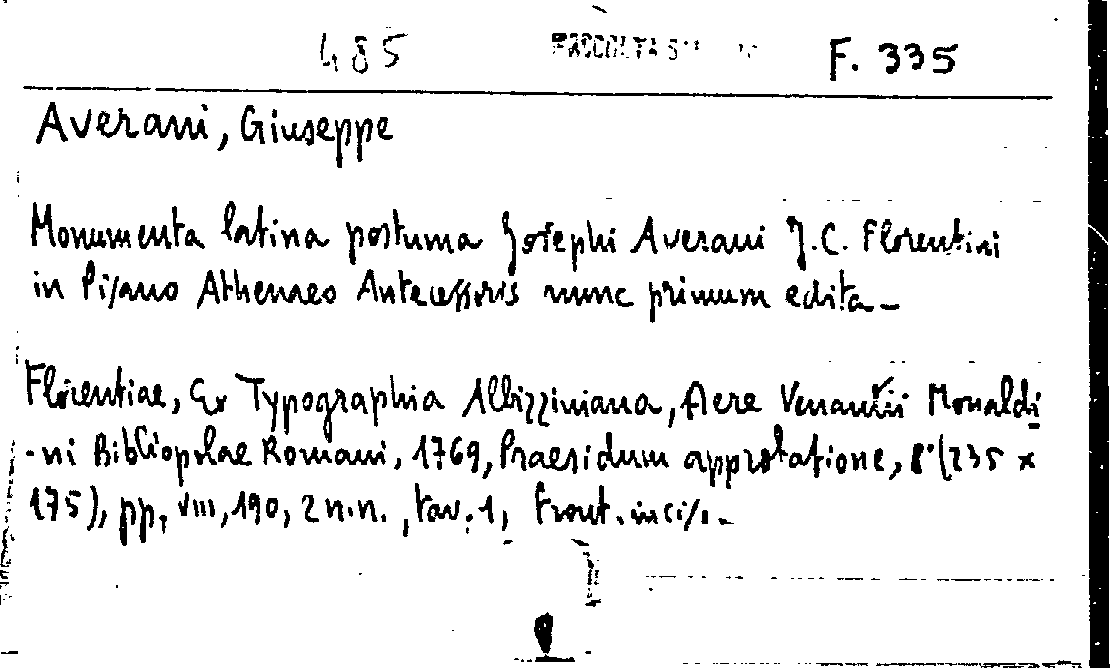 485 RACCOLTA F. 335
Averani, Giuseppe
Monumenta latina postuma Josephi Averani J.C. Florentini
in Pisano Athenaeo Antecessoris nunc primum edita -
Florentiae, Ex Typographia Albizziniana, Aere Venantii Monaldi
-ni Bibliopolae Romani, 1769, Praesidum approbatione, 8° (235 x
175), pp. VIII, 190, 2 n.n., tav. 1, front. incis. -